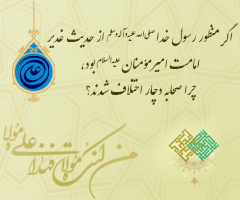 اگر منظور رسول خدا صلی الله علیه و آله وسلم از حدیث غدیر
امامت امیرمؤمنان علیه السلام بود،
چرا صحابه دچار اختلاف شدند؟
من کنت مولاه فهذا علی مولاه